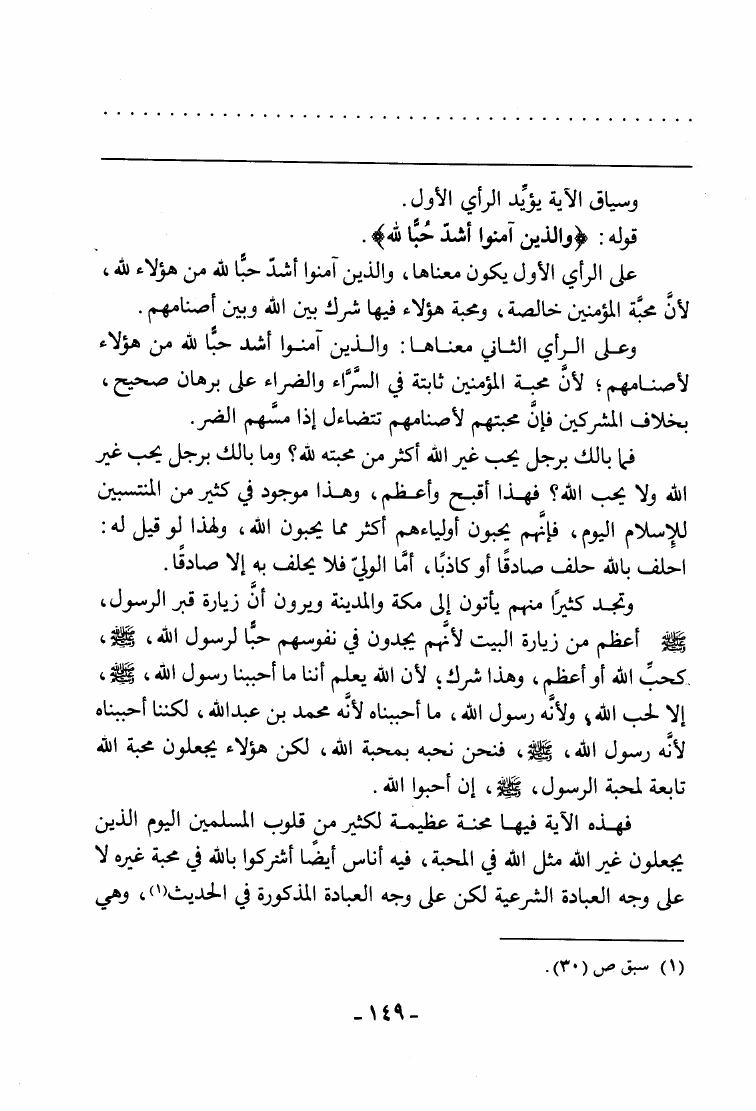 وسياق الآية يؤيِّد الرأي الأول.
قوله: ﴿والذين آمنوا أشدّ حُبًّا لله﴾.
على الرأي الأول يكون معناها، والذين آمنوا أشدّ حبًّا لله من هؤلاء لله،
لأنَّ محبَّة المؤمنين خالصة، ومحبة هؤلاء فيها شرك بين الله وبين أصنامهم.
وعلى الرأي الثاني معناها: والذين آمنوا أشد حبًّا لله من هؤلاء
لأصنامهم؛ لأنَّ محبة المؤمنين ثابتة في السَّرَّاء والضراء على برهان صحيح،
بخلاف المشركين فإنَّ محبتهم لأصنامهم تتضاءل إذا مسَّهم الضر.
فما بالك برجل يحب غير الله أكثر من محبته لله؟ وما بالك برجل يحب غير
الله ولا يحب الله؟ فهذا أقبح وأعظم، وهذا موجود في كثير من المنتسبين
للإسلام اليوم، فإنَّهم يحبون أولياءهم أكثر مما يحبون الله، ولهذا لو قيل له:
احلف بالله حلف صادقًا أو كاذبًا، أمَّا الوليّ فلا يحلف به إلا صادقًا.
وتجد كثيرًا منهم يأتون إلى مكة والمدينة ويرون أنَّ زيارة قبر الرسول،
ﷺ أعظم من زيارة البيت لأنَّهم يجدون في نفوسهم حبًّا لرسول الله، ﷺ،
كحبِّ الله أو أعظم، وهذا شرك؛ لأن الله يعلم أننا ما أحببنا رسول الله، ﷺ،
إلا لحب الله؛ ولأنَّه رسول الله، ما أحببناه لأنَّه محمد بن عبدالله، لكننا أحببناه
لأنَّه رسول الله، ﷺ، فنحن نحبه بمحبة الله، لكن هؤلاء يجعلون محبة الله
تابعة لمحبة الرسول، ﷺ، إن أحبوا الله.
فهذه الآية فيها محنة عظيمة لكثير من قلوب المسلمين اليوم الذين
يجعلون غير الله مثل الله في المحبة، فيه أناس أيضًا أشركوا بالله في محبة غيره لا
على وجه العبادة الشرعية لكن على وجه العبادة المذكورة في الحديث(١)، وهي
(١) سبق ص (٣٠).
- ١٤٩ -